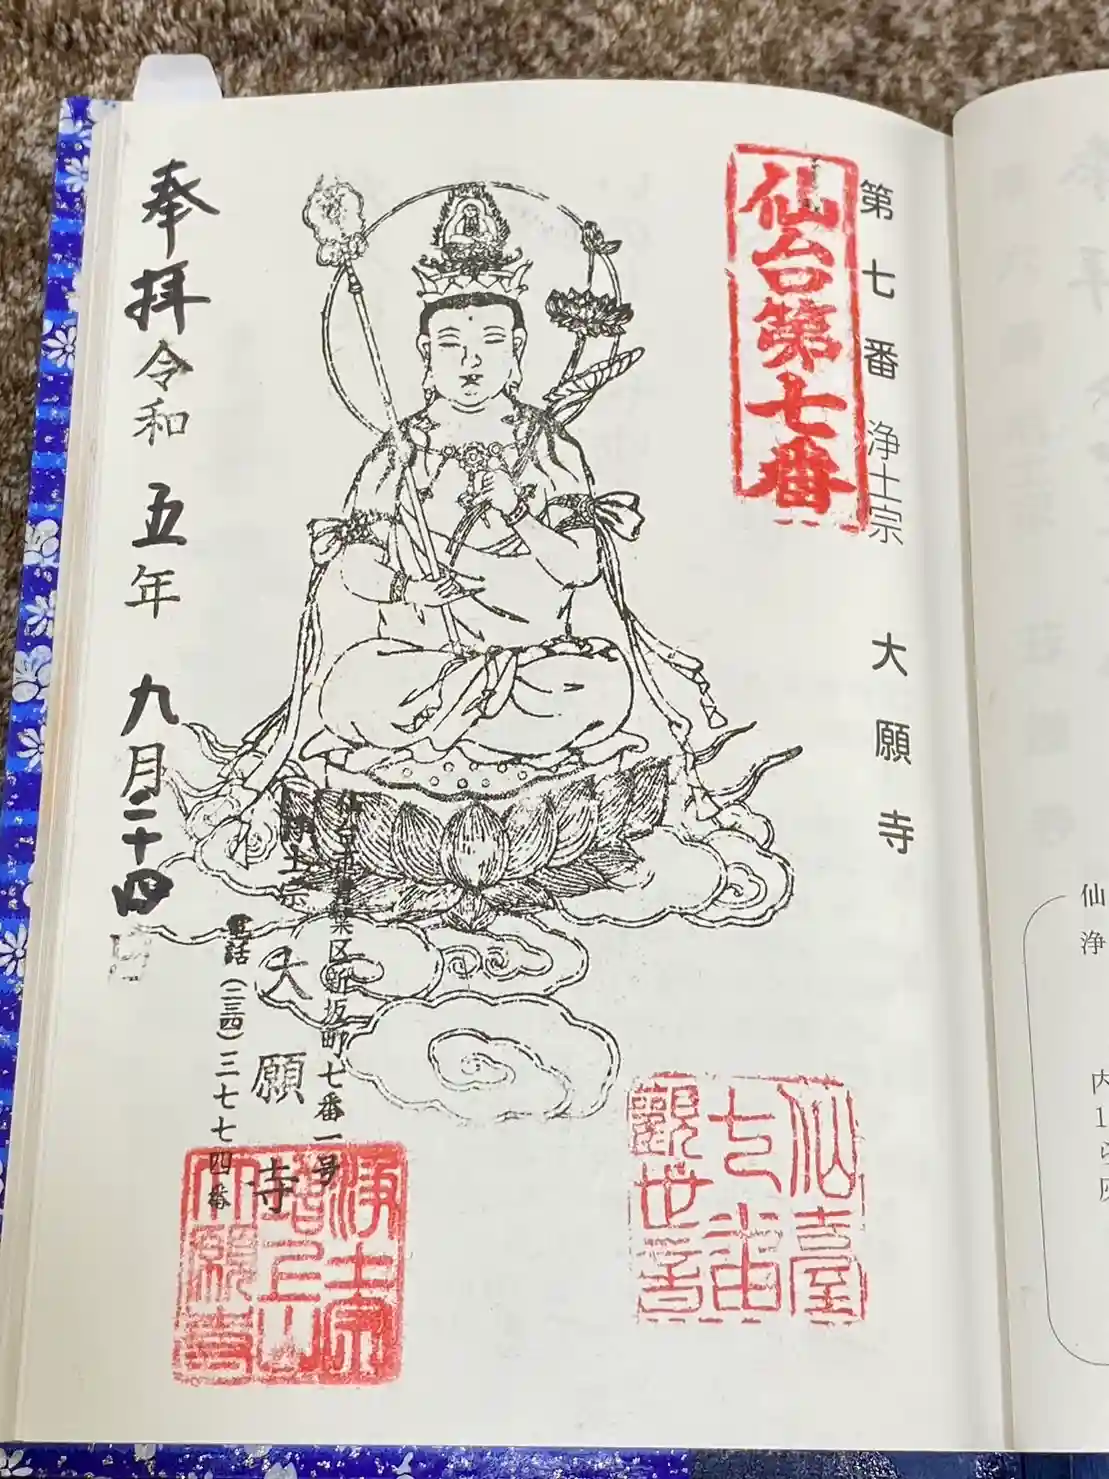 仙
浄
内
1
第七番 浄土宗 大願寺
仙台第七番
仙臺
七番
觀世音
仙台市青葉区新坂町七番一号
浄土宗 大願寺
電話(二三四)三七七四番
浄土宗
増上山
大願寺
奉拝 令和五年 九月二十四日